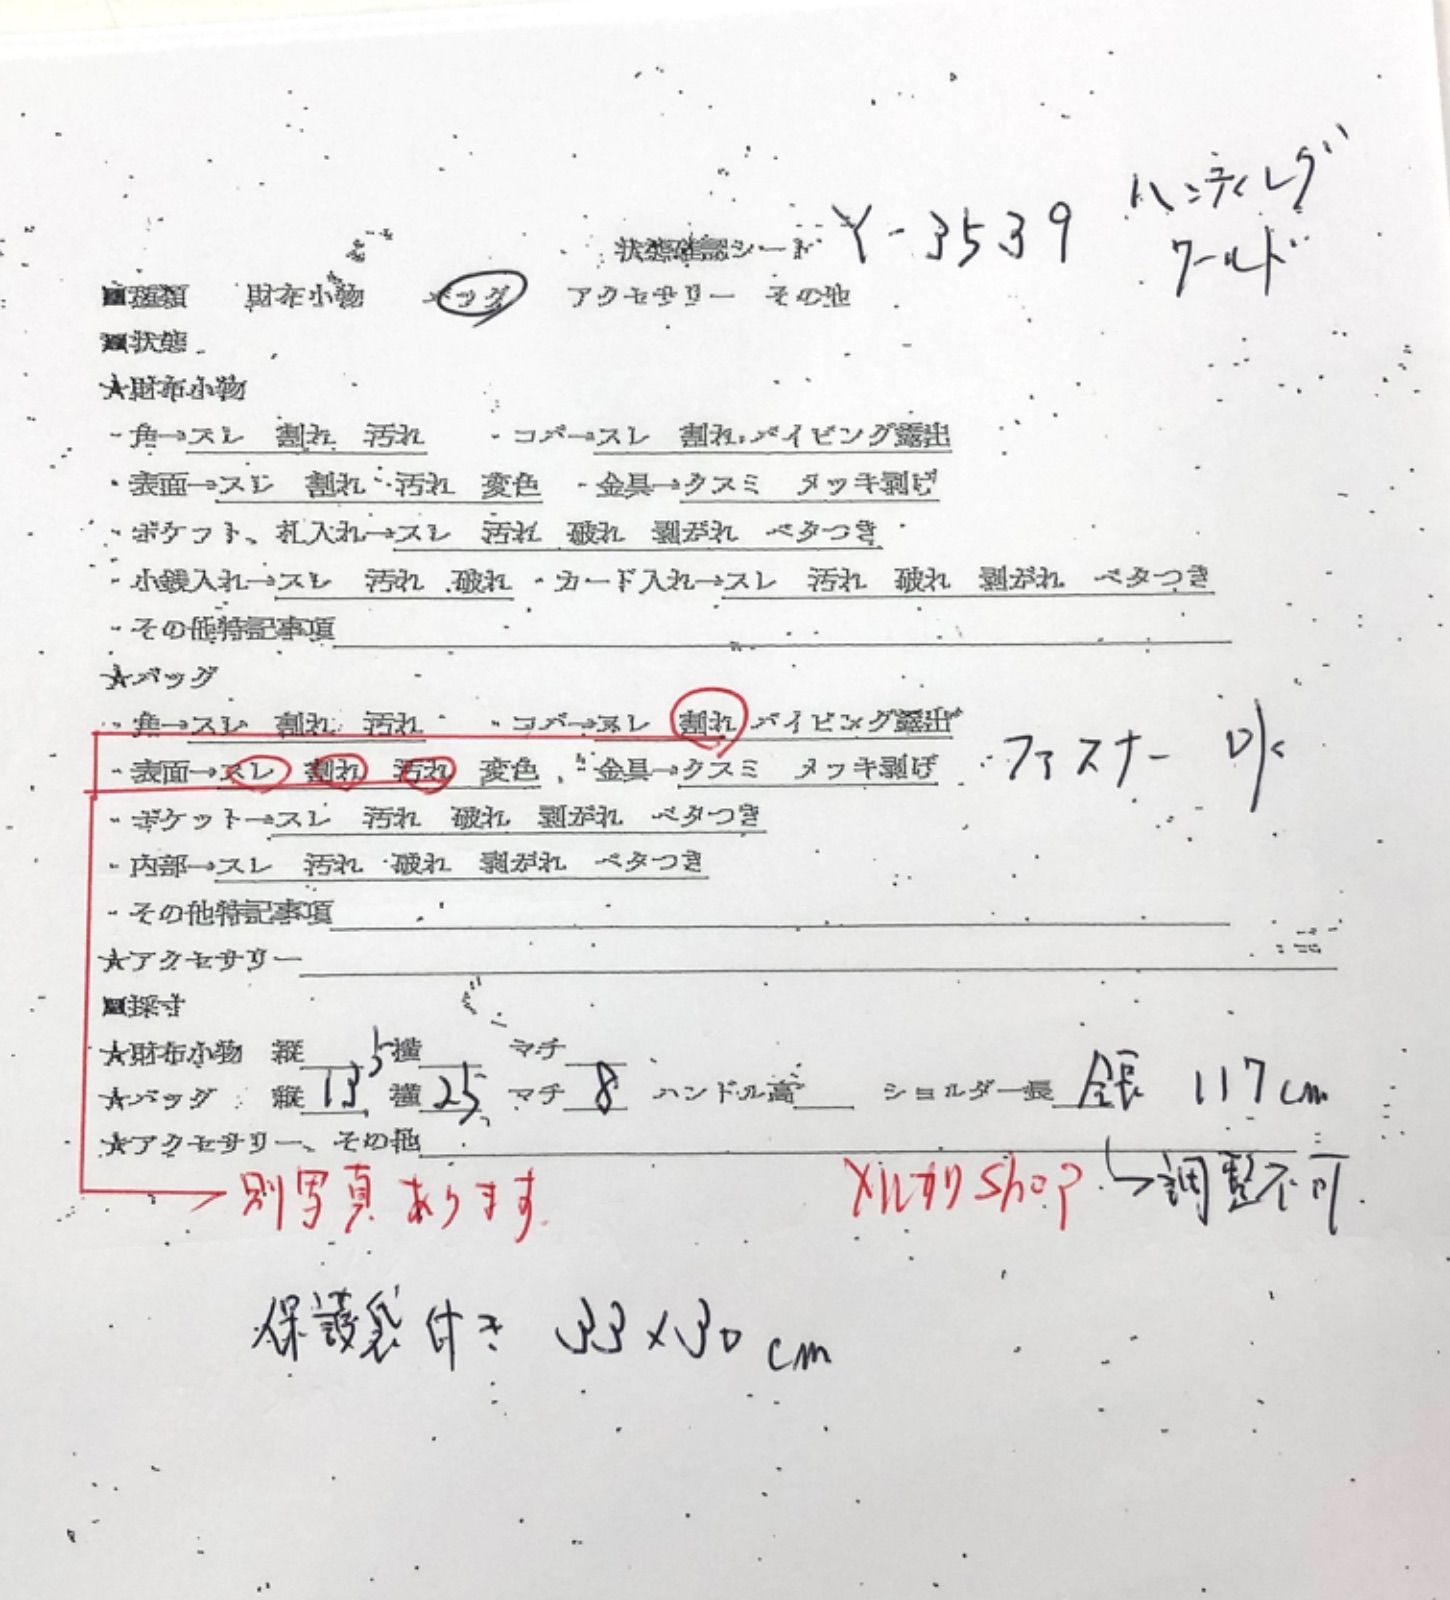 状態確認シート Y-3539 ハンティング
ワールド
■種類 財布小物 バッグ アクセサリー その他
■状態
★財布小物
・角→スレ 割れ 汚れ ・コバ→スレ 割れ パイピング露出
・表面→スレ 割れ 汚れ 変色 ・金具→クスミ メッキ剥げ
・ポケット、札入れ→スレ 汚れ 破れ 剥がれ ベタつき
・小銭入れ→スレ 汚れ 破れ ・カード入れ→スレ 汚れ 破れ 剥がれ ベタつき
・その他特記事項
★バッグ
・角→スレ 割れ 汚れ ・コバ→スレ 割れ パイピング露出
・表面→スレ 割れ 汚れ 変色 ・金具→クスミ メッキ剥げ ファスナー
・ポケット→スレ 汚れ 破れ 剥がれ ベタつき
・内部→スレ 汚れ 破れ 剥がれ ベタつき
・その他特記事項
★アクセサリー
■採寸
★財布小物 縦 横 マチ
★バッグ 縦13.5 横25 マチ8 ハンドル高 ショルダー長 全長 117cm
★アクセサリー、その他
別写真あります メルカリshop 調整不可
保護袋付き 33×30cm